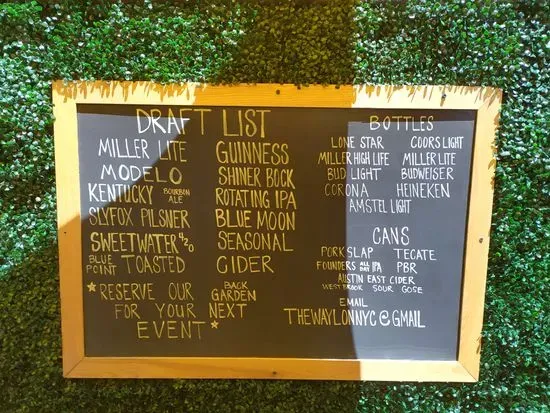 DRAFT LIST
MILLER LITE
MODELO
KENTUCKY BOURBON ALE
SLYFOX PILSNER
SWEETWATER 420
BLUE POINT TOASTED
GUINNESS
SHINER BOCK
ROTATING IPA
BLUE MOON
SEASONAL
CIDER
* RESERVE OUR BACK GARDEN
FOR YOUR NEXT
EVENT *
BOTTLES
LONE STAR COORS LIGHT
MILLER HIGH LIFE MILLER LITE
BUD LIGHT BUDWEISER
CORONA HEINEKEN
AMSTEL LIGHT
CANS
PORK SLAP TECATE
FOUNDERS ALL DAY IPA PBR
AUSTIN EAST CIDER
WEST BROOK SOUR GOSE
EMAIL
THEWAYLONNYC@GMAIL